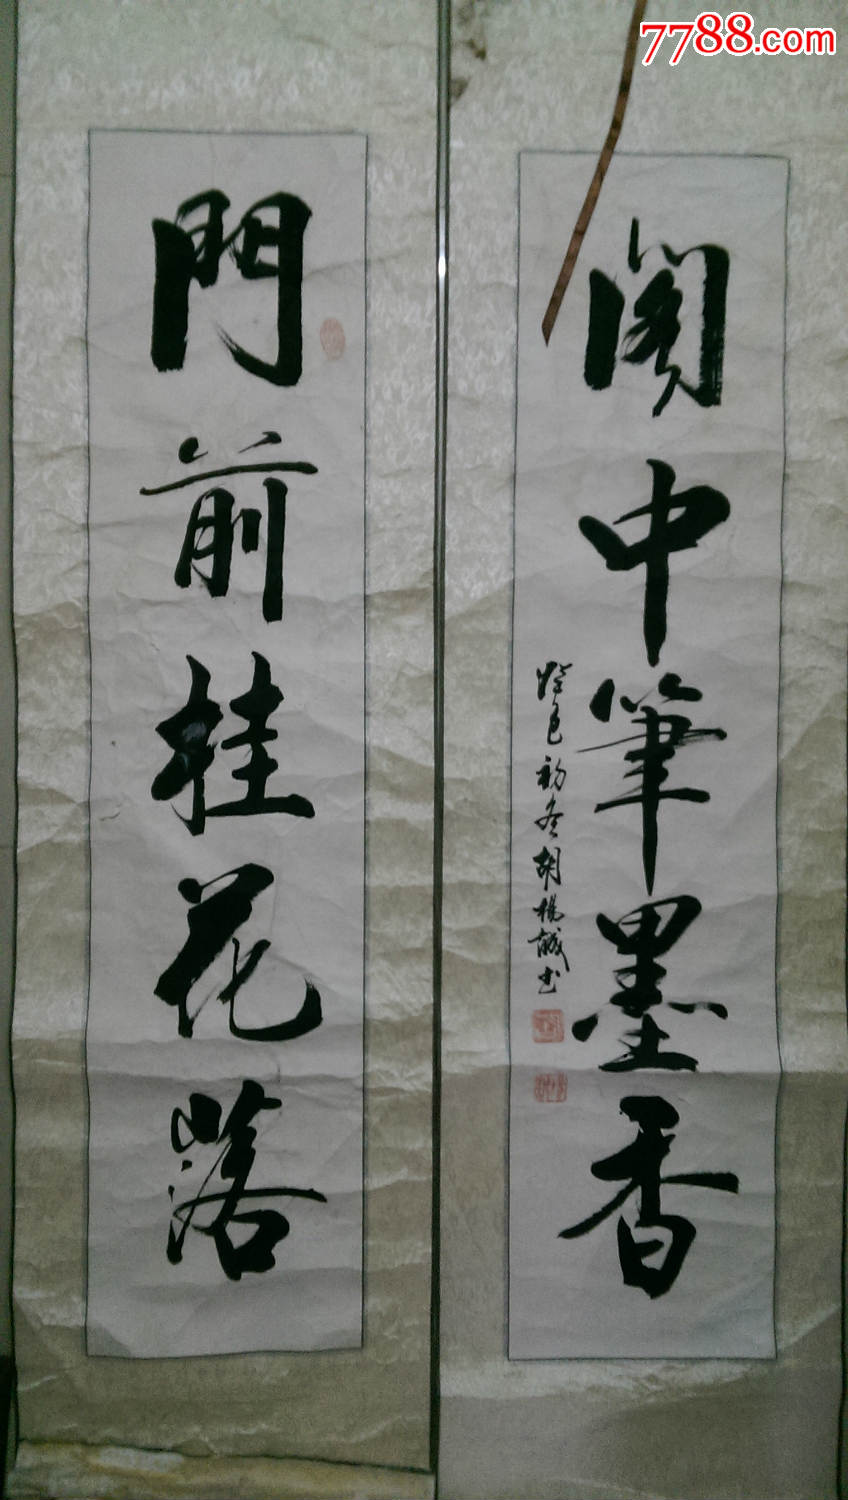 7788.com
門前桂花落
閣中筆墨香
初冬胡楊誠书